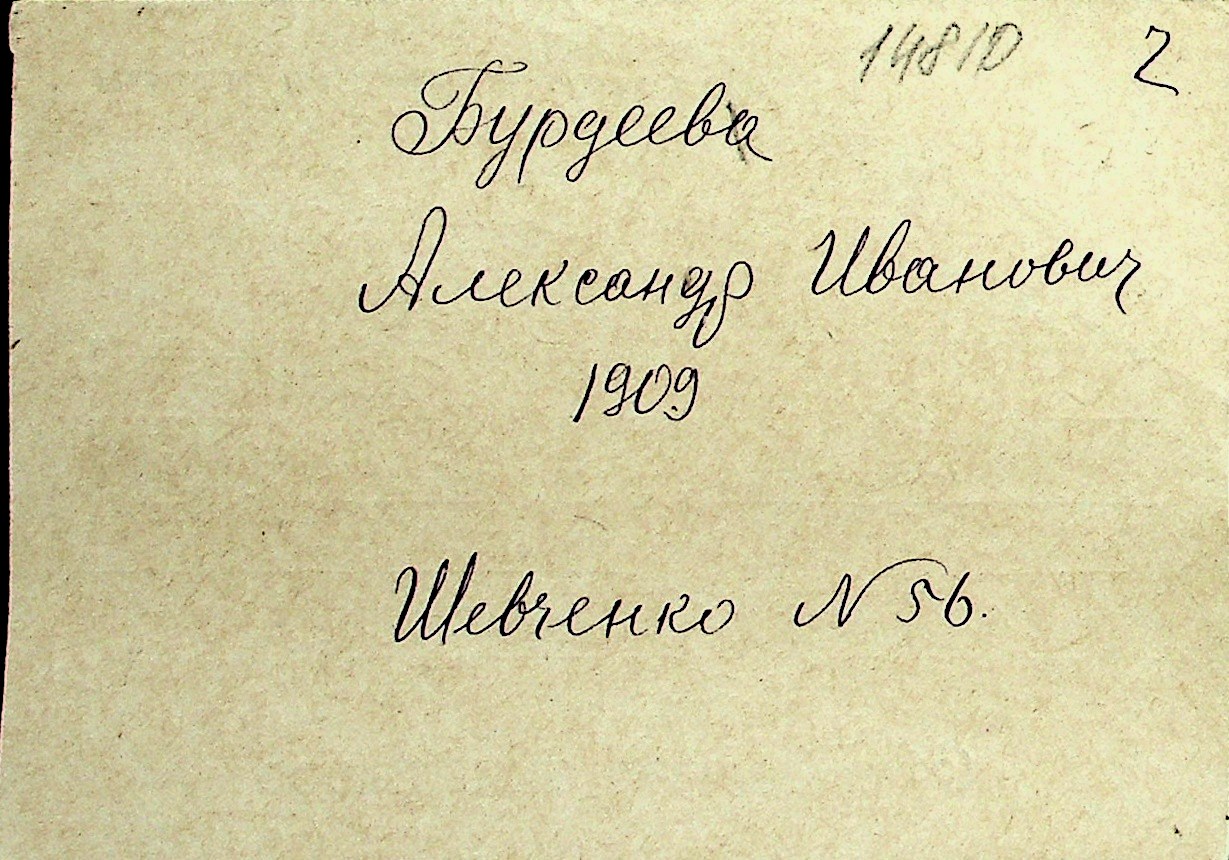 14810 2
Бурдеева
Александр Иванович
1909
Шевченко N 56.